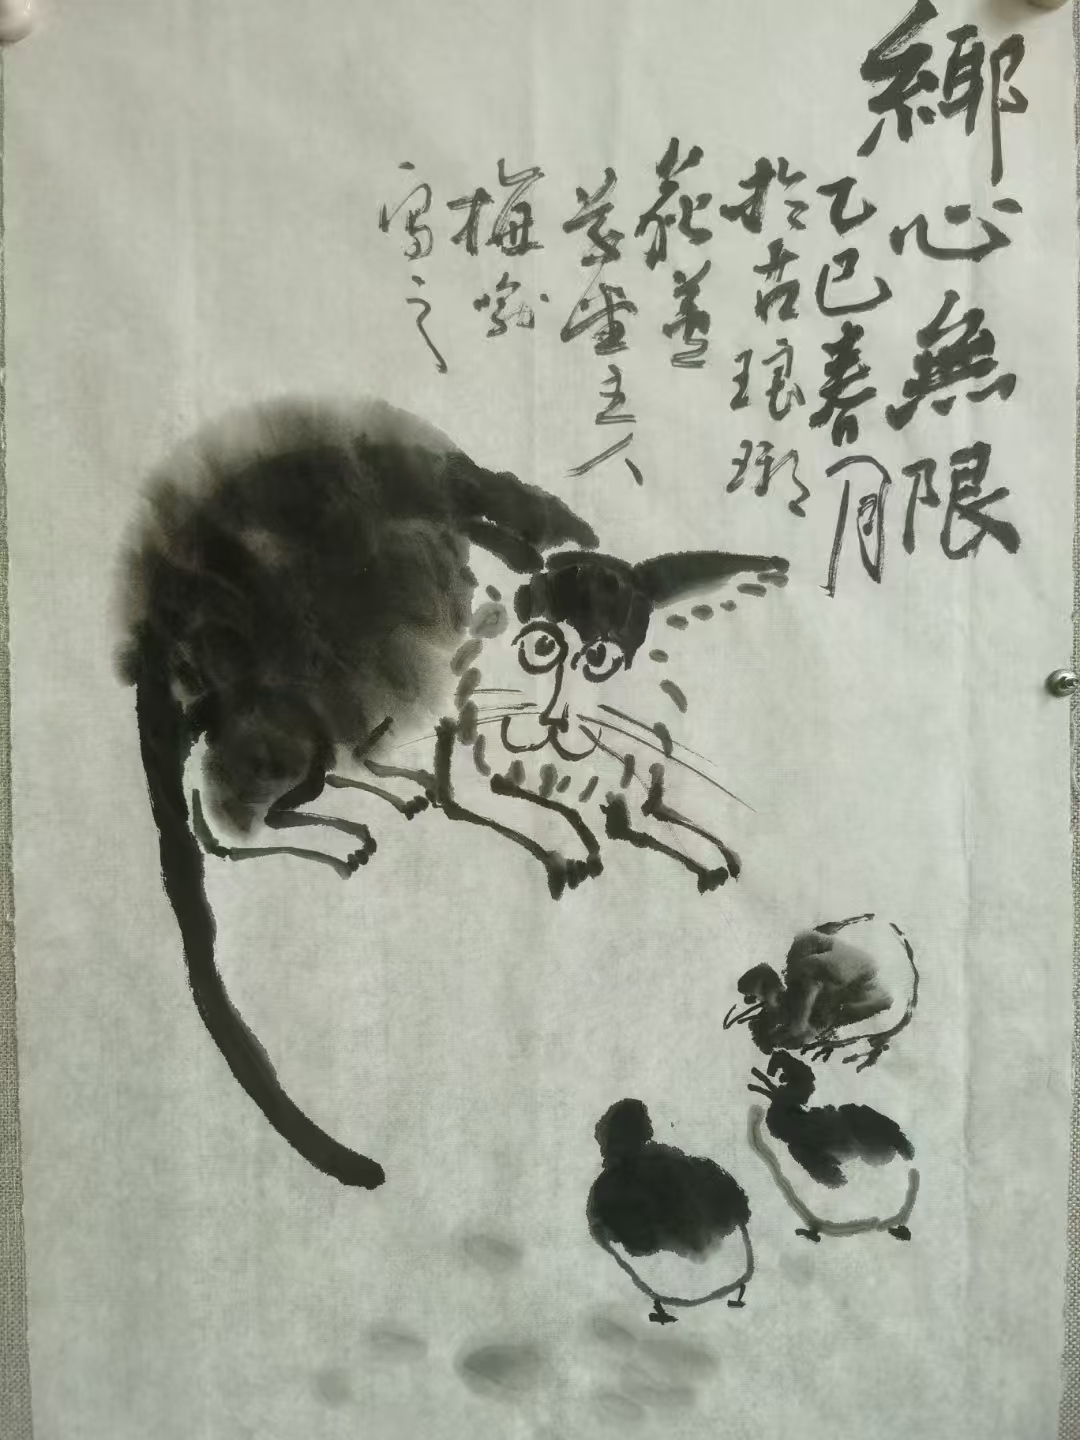 鄉心無限
乙巳春月
於古琅琊
草堂主人
梅
寫之